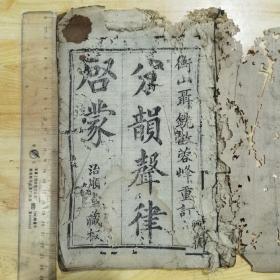 衡山聶銑敏蓉峰重訂
分韻聲律
啓蒙
治順堂藏板